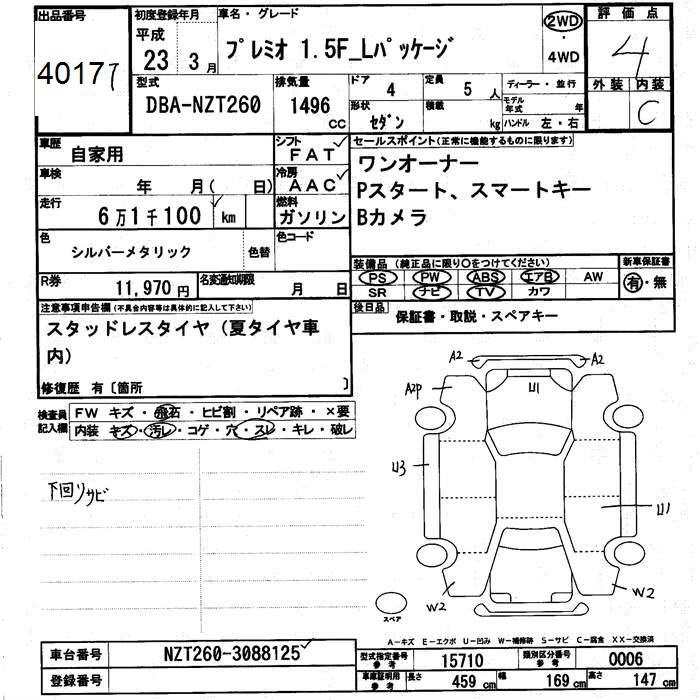 出品番号 初度登録年月 車名・グレード 2WD 評価点
平成
40177 23年 3月 プレミオ 1.5F_Lパッケージ ・ 4WD 4
型式 排気量 ドア 4 定員 5人 ディーラー・並行 外装 内装
DBA-NZT260 1496 CC 形状 セダン 積載 kg モデル年式 年 ハンドル 左・右 C
車歴 自家用 シフト FAT セールスポイント(正常に機能するものに限ります)
車検 年 月( 日) 冷房 AAC ワンオーナー
走行 6万1千100 km 燃料 ガソリン Pスタート、スマートキー
Bカメラ
色 シルバーメタリック 色替 色コード
装備品 (純正品に限り○をつけてください) 新車保証書
R券 11,970円 名変通知期限 月 日 PS PW ABS エアB AW 有・無
SR ナビ TV カワ
注意事項申告欄 (不具合内容等は具体的に記入して下さい) 後日品 保証書・取説・スペアキー
スタッドレスタイヤ(夏タイヤ車
内)
修復歴 有〔箇所 〕
検査員 FW キズ・飛石・ヒビ割・リペア跡・×要
記入欄 内装 キズ・汚レ・コゲ・穴・スレ・キレ・破レ
A2 A2
A2P U1
U3
下回りサビ
U1
W2 W2
スペア
A-キズ E-エクボ U-凹み W-補修跡 S-サビ C-腐食 XX-交換済
車台番号 NZT260-3088125 型式指定番号 参考 15710 類別区分番号 参考 0006
登録番号 車庫証明用 参考 長さ 459 cm 幅 169 cm 高さ 147 cm